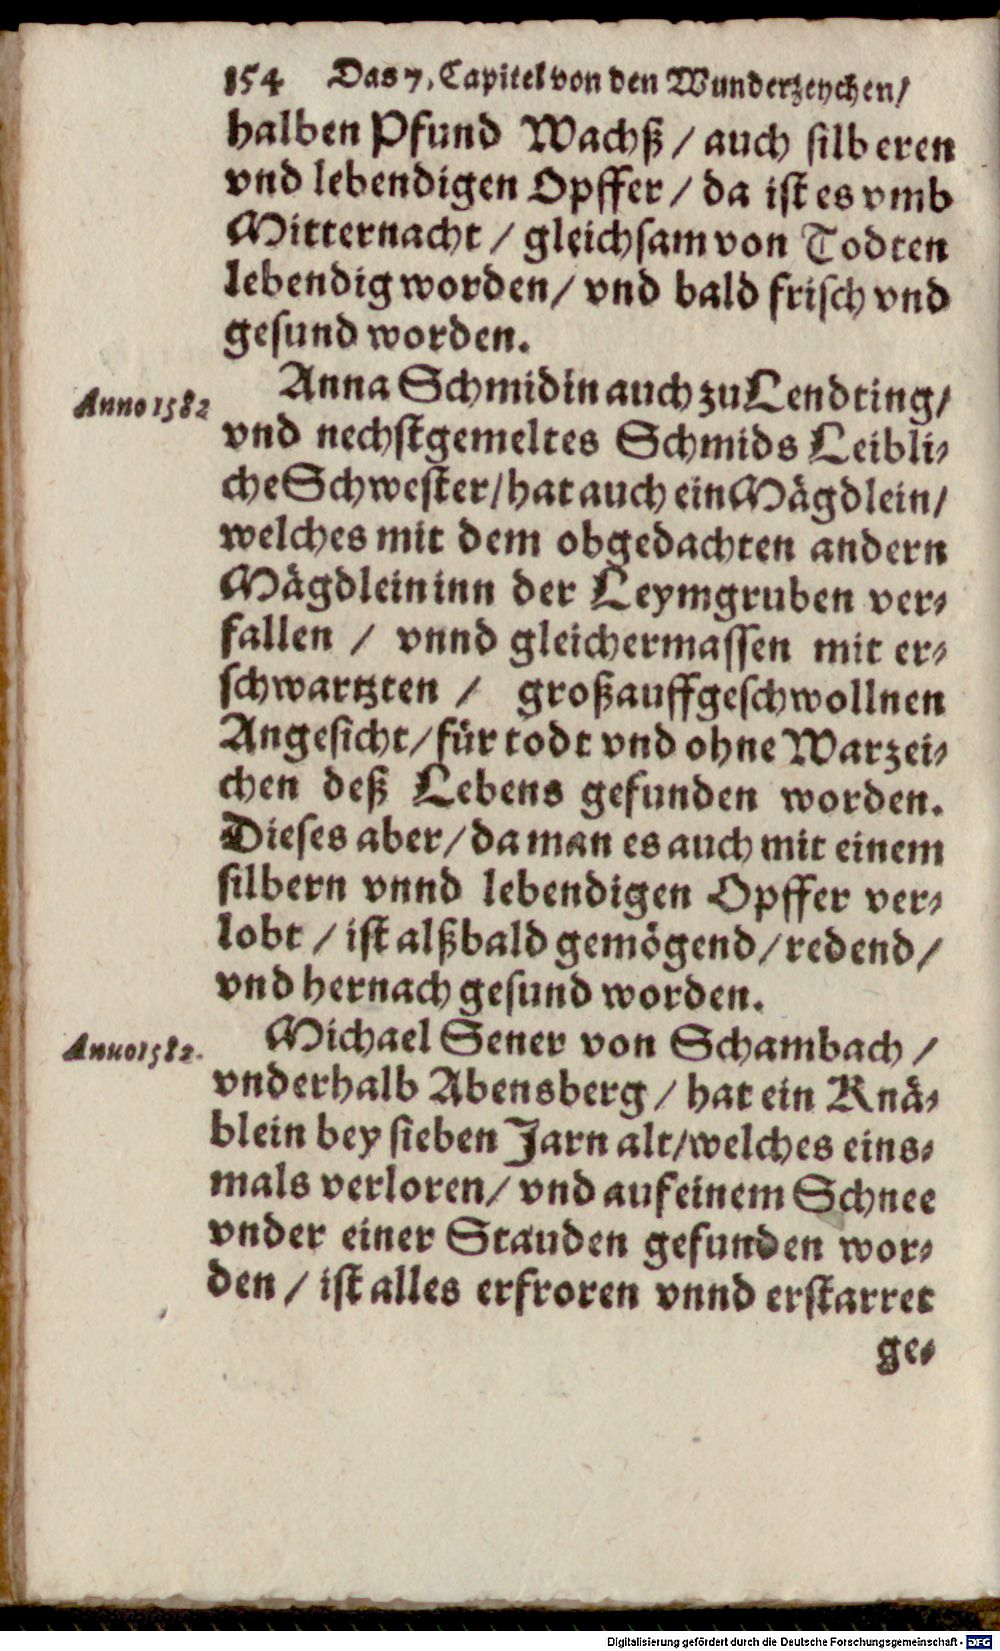 154 Das 7. Capitel von den Wunderzeychen/
halben Pfund Wachß / auch silberen
vnd lebendigen Opffer / da ist es vmb
Mitternacht / gleichsam von Todten
lebendig worden / vnd bald frisch vnd
gesund worden.
Anno 1582
Anna Schmidin auch zu Lendting /
vnd nechstgemeltes Schmids Leibli-
che Schwester / hat auch ein Mägdlein /
welches mit dem obgedachten andern
Mägdlein inn der Leymgruben ver-
fallen / vnnd gleichermassen mit er-
schwartzten / groß auffgeschwollnen
Angesicht / für todt vnd ohne Warzei-
chen deß Lebens gefunden worden.
Dieses aber / da man es auch mit einem
silbern vnnd lebendigen Opffer ver-
lobt / ist alßbald gemögend / redend /
vnd hernach gesund worden.
Anno 1582.
Michael Sener von Schambach /
vnderhalb Abensberg / hat ein Knä-
blein bey sieben Jarn alt / welches eins-
mals verloren / vnd auf einem Schnee
vnder einer Stauden gefunden wor-
den / ist alles erfroren vnnd erstarret
ge-
Digitalisierung gefördert durch die Deutsche Forschungsgemeinschaft - DFG